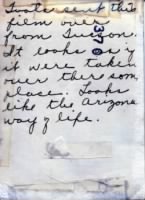 sent this
film over
from Tucson.
It looks as if
it were taken
over there some
place. Looks
like the Arizona
way of life.
370